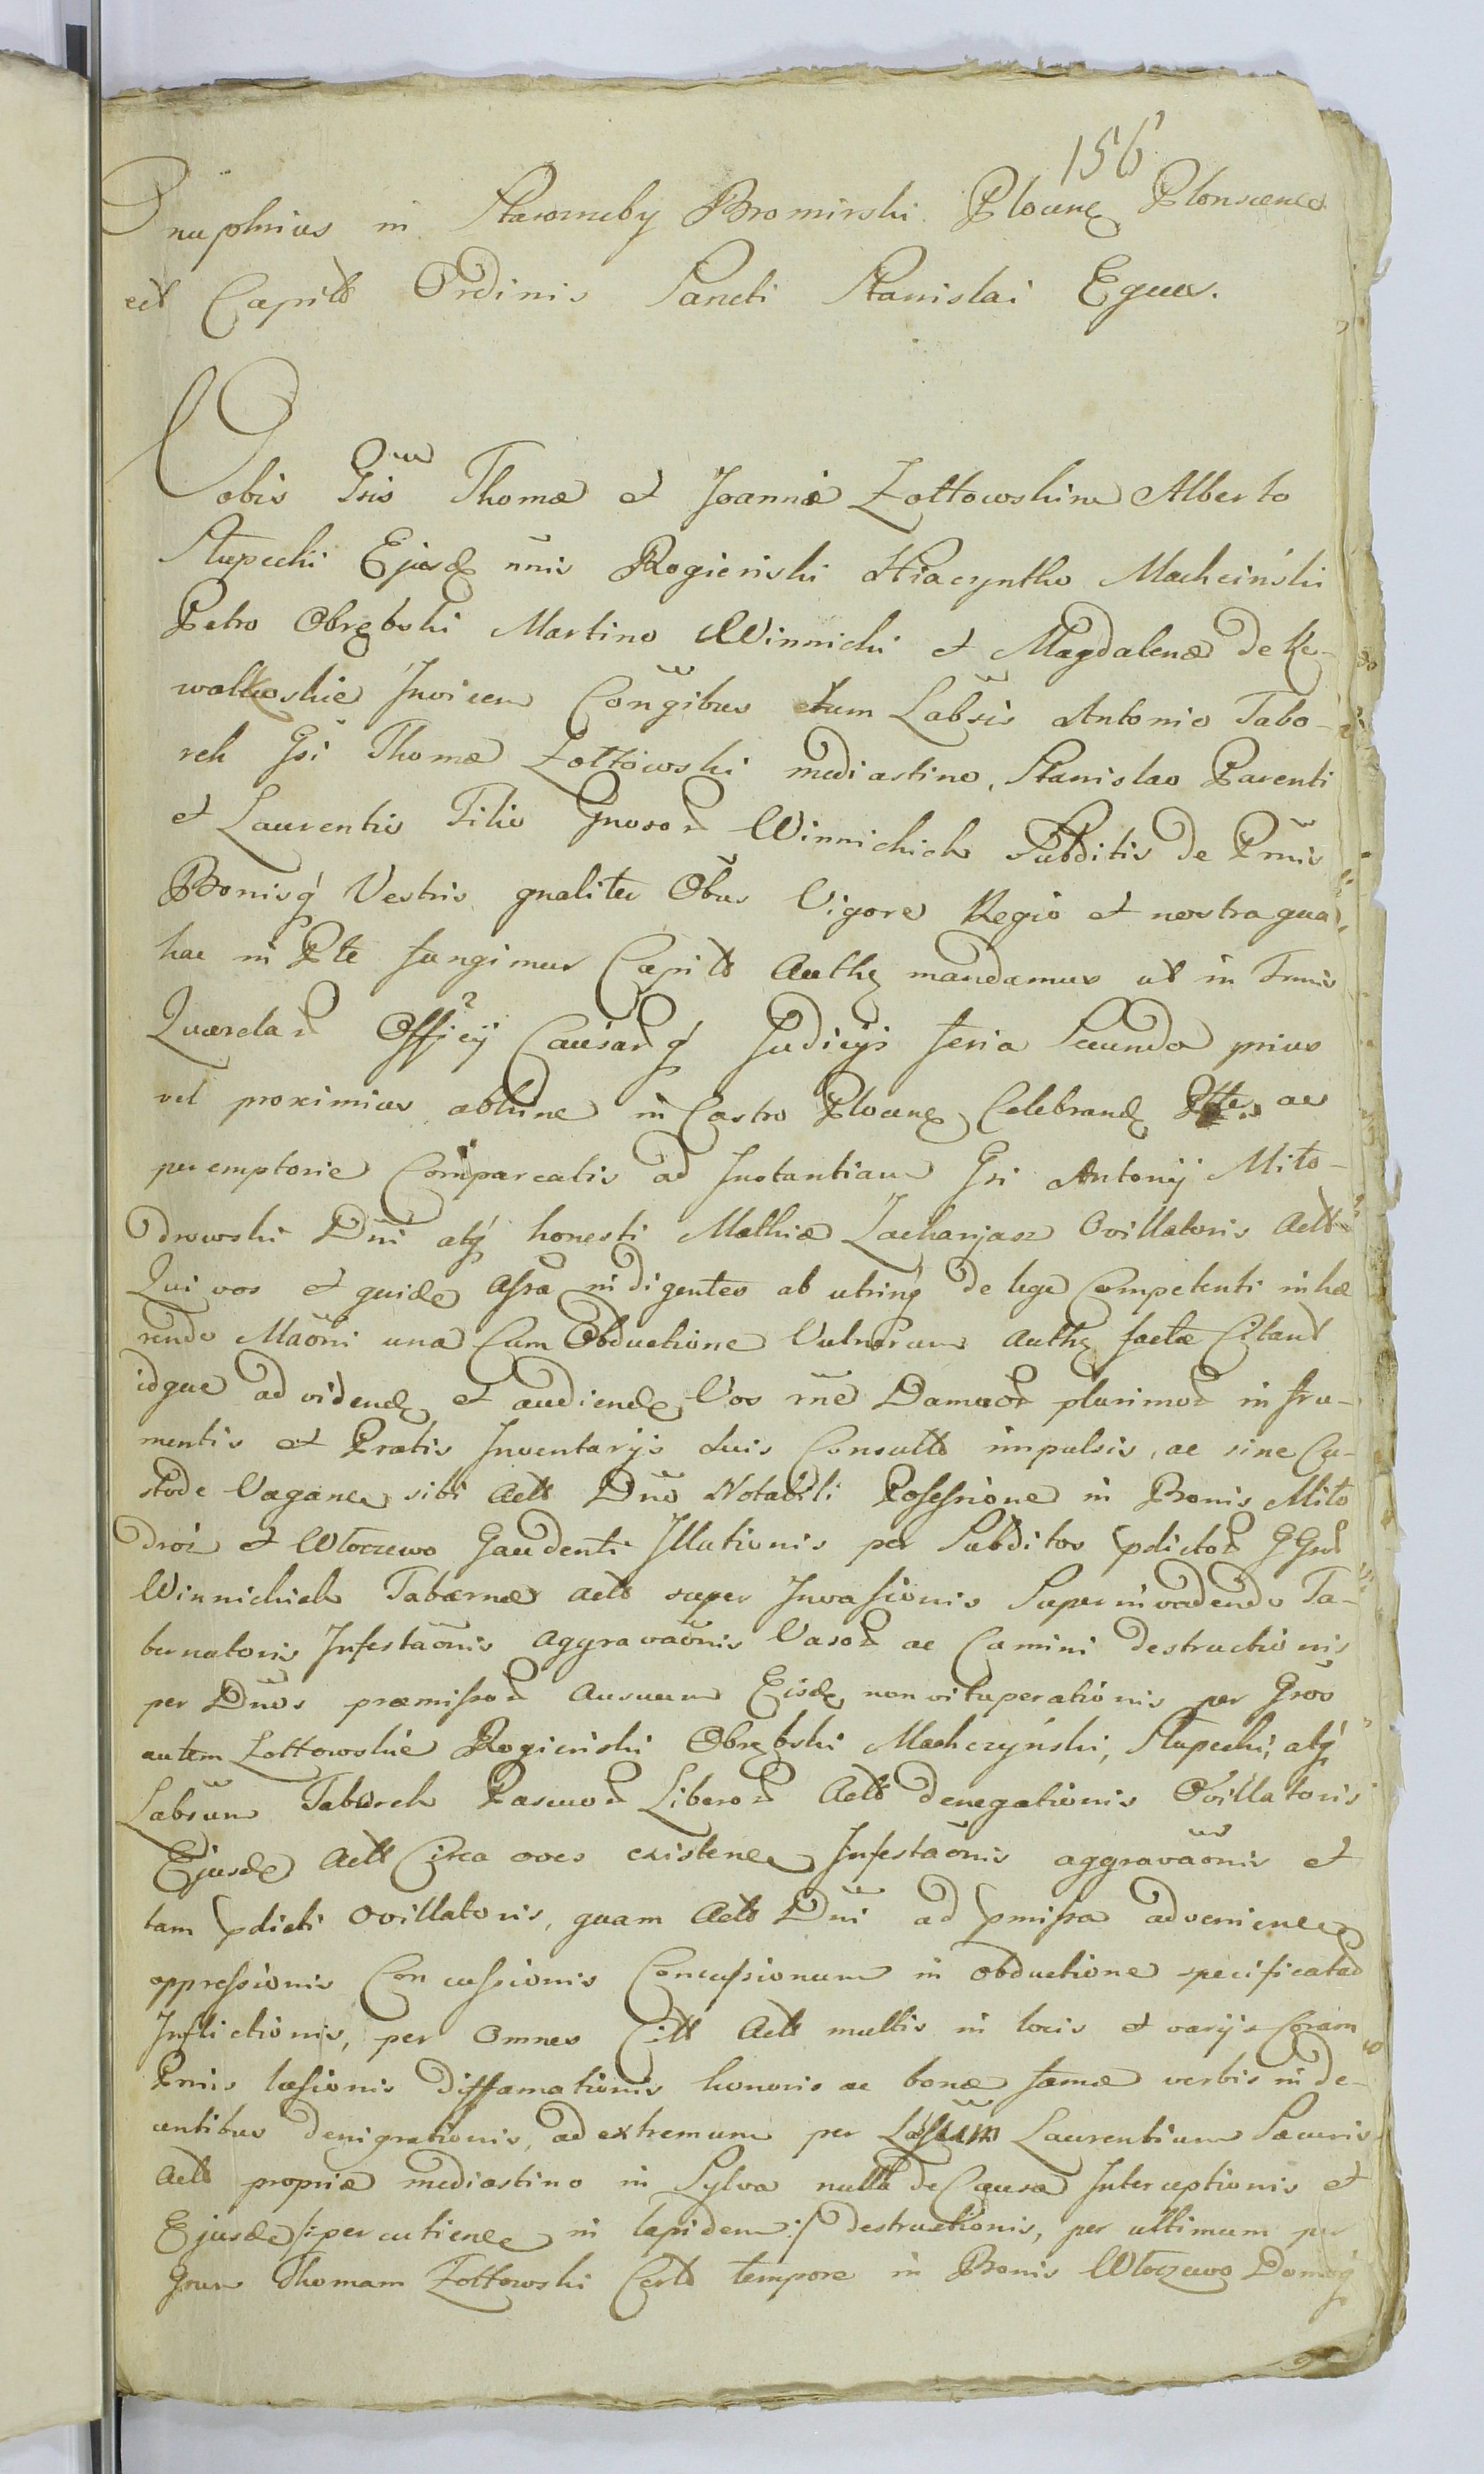 156
Onuphrius in Staroruby Bromirski Plocens Plonscens
ect Capitts Ordinis Sancti Stanislai Eques.
Vobis Gsis Thomæ et Joannæ Zołtowskim Alberto
Słupecki Ejusd nnis Rogieński Hiacyntho Machciński
Petro Obrębski Martino Winnicki et Magdalenæ de Ko-
walkoskie Invicem Conjgibus tum Labsis Antonio Tabo-
rek Gsi Thomæ Zołtowski mediastino, Stanislao Parenti
et Laurentio Filio Gnosor Winnickich Subditis de Prmis
Bonisq́ Vestris gnaliter Obus Vigore Regio et nostra qua
hac in Pte fungimur Capitt Authe mandamus ut in Trmis
Quærelar Officij Causarq́ Judicijs feria Secunda prius
vel proximius abhinc in Castro Plocens Celebrand ac
peremptorie Compareatis ad Instantiam Gsi Antonij Miło-
drowski Dni atq́ honesti Mathiæ Zacharjasz Ovillatoris Actt
Qui vos et quide Assa indigentes ab utrinq́ de lege Competenti inhæ
rendo Maoni una Cum Obductione Vulnerum authe factæ Citant
idque ad vidend et audiend Vos rne Damnor plurimor in fru-
mentis et Pratis Inventarijs suis Consulto impulsis, ac sine Cu-
stode Vagance sibi Actt Dno Notabili Possessione in Bonis Miło
droż et Włoczewo Gaudenti Illationis per Subditos pdictor GGnor
Winnickich Tabernæ actt super Invasionis Superinvadendo Ta-
bernatoris Infestaonis aggravaonis Vasor ac Camini destructionis
per Dnos præmissor Ausuum Eisde non vituperationis per Gnos
autem Zołtowskie Rogieński Obrębski Machczyński, Słupecki, atq́
Labsum Taborek Pascuor Liberor Actt denegationis Ovillatoris
Ejusde Actt Circa oves existence Infestaonis aggravaonis et
tam pdicti Ovillatoris, quam Actt Dni ad pmissa advenience
oppressionis Concussionis Concussionum in obductione specificatar
Inflictionis, per Omnes Citt Actt multis in locis et varijs Coram
Prnis læsionis diffamationis honoris ac bonæ famæ verbis inde-
centibus denigrationis, ad extremum per Labsum Laurentium Securis
Actt propriæ mediastino in Sylva nulla de Causa Interceptionis et
Ejusde /: percutience in lapidem :/ destructionis, per ultimum per
Gnum Thomam Zołtowski Certo tempore in Bonis Włoczewo Domoq́